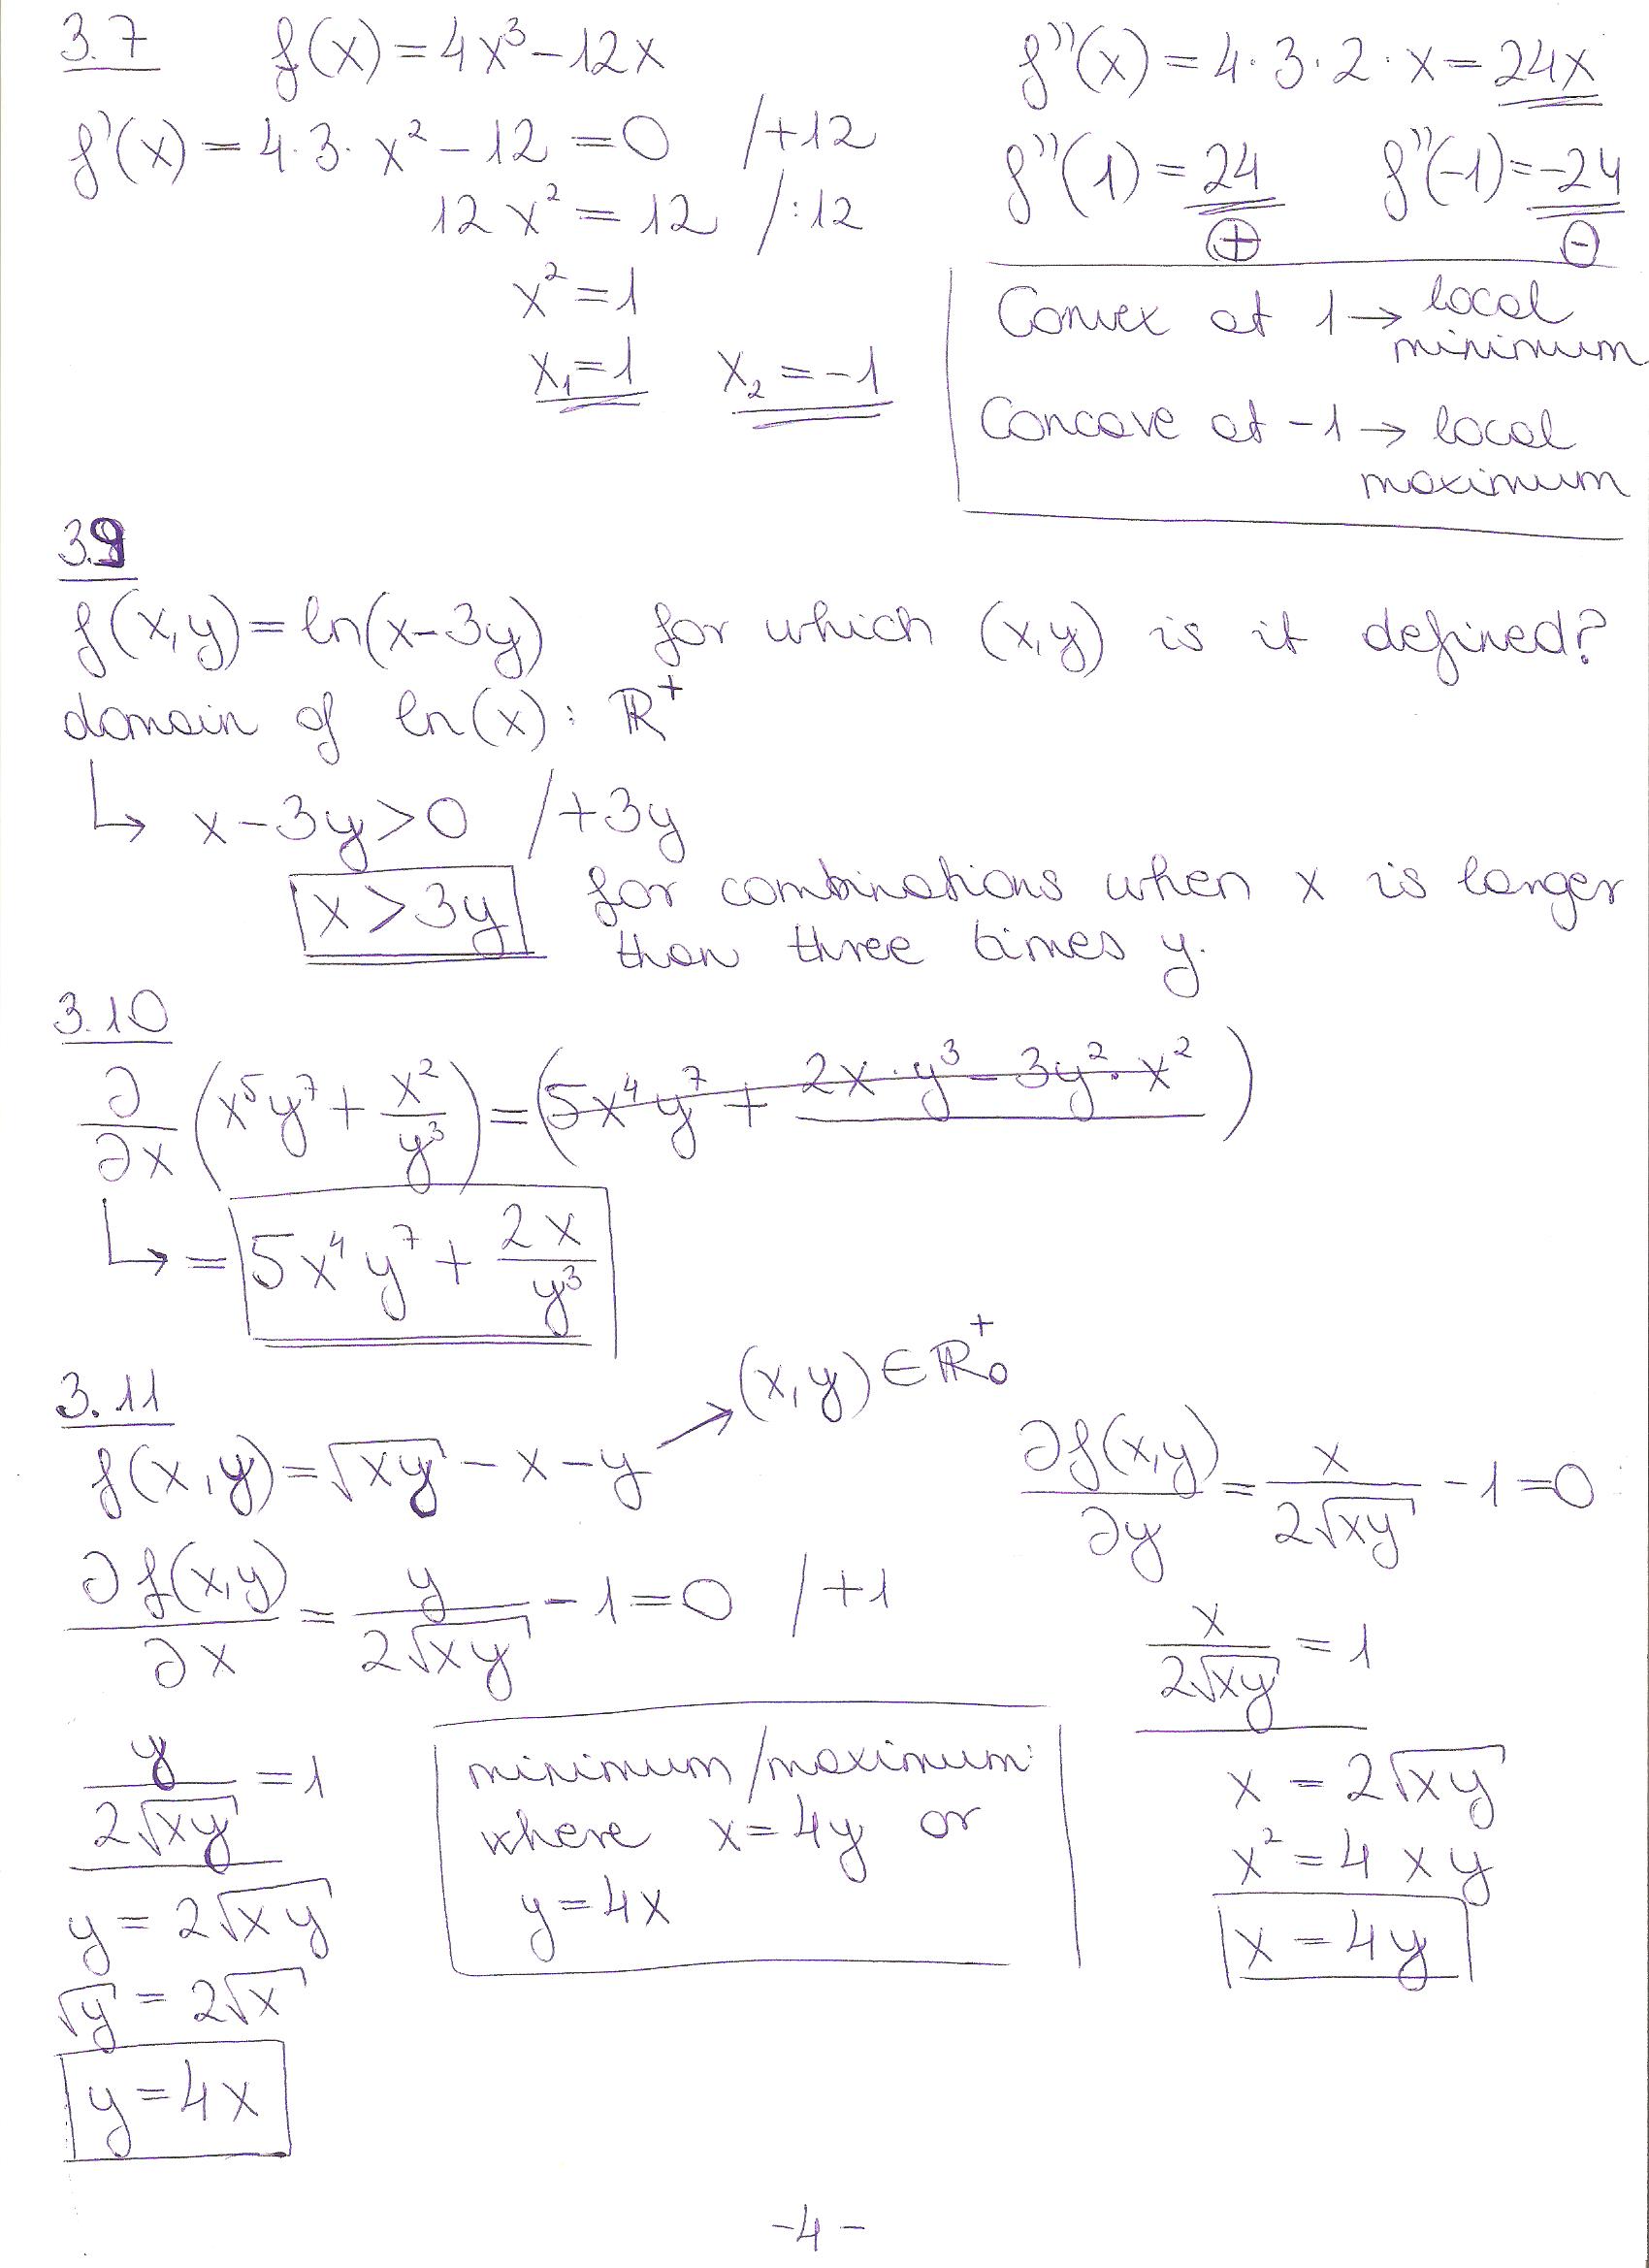 3.7 f(x) = 4x³ - 12x
f'(x) = 4·3· x² - 12 = 0 /+12
12x² = 12 /:12
x² = 1
x₁ = 1 x₂ = -1
f''(x) = 4·3·2·x = 24x
f''(1) = 24 f''(-1) = -24
⊕ ⊖
Convex at 1 → local
minimum
Concave at -1 → local
maximum
3.9
f(x,y) = ln(x-3y) for which (x,y) is it defined?
domain of ln(x): ℝ⁺
↳ x - 3y > 0 /+3y
x > 3y for combinations when x is larger
than three times y.
3.10
∂/∂x (x⁵y⁷ + x²/y³) = (5x⁴y⁷ + 2x·y³ - 3y²·x²)
↳ = 5x⁴y⁷ + 2x/y³
3.11
f(x,y) = √xy - x - y → (x,y) ∈ ℝ₀⁺
∂f(x,y)/∂x = y/2√xy - 1 = 0 /+1
y/2√xy = 1
y = 2√xy
√y = 2√x
y = 4x
minimum/maximum:
where x = 4y or
y = 4x
∂f(x,y)/∂y = x/2√xy - 1 = 0
x/2√xy = 1
x = 2√xy
x² = 4xy
x = 4y
-4-